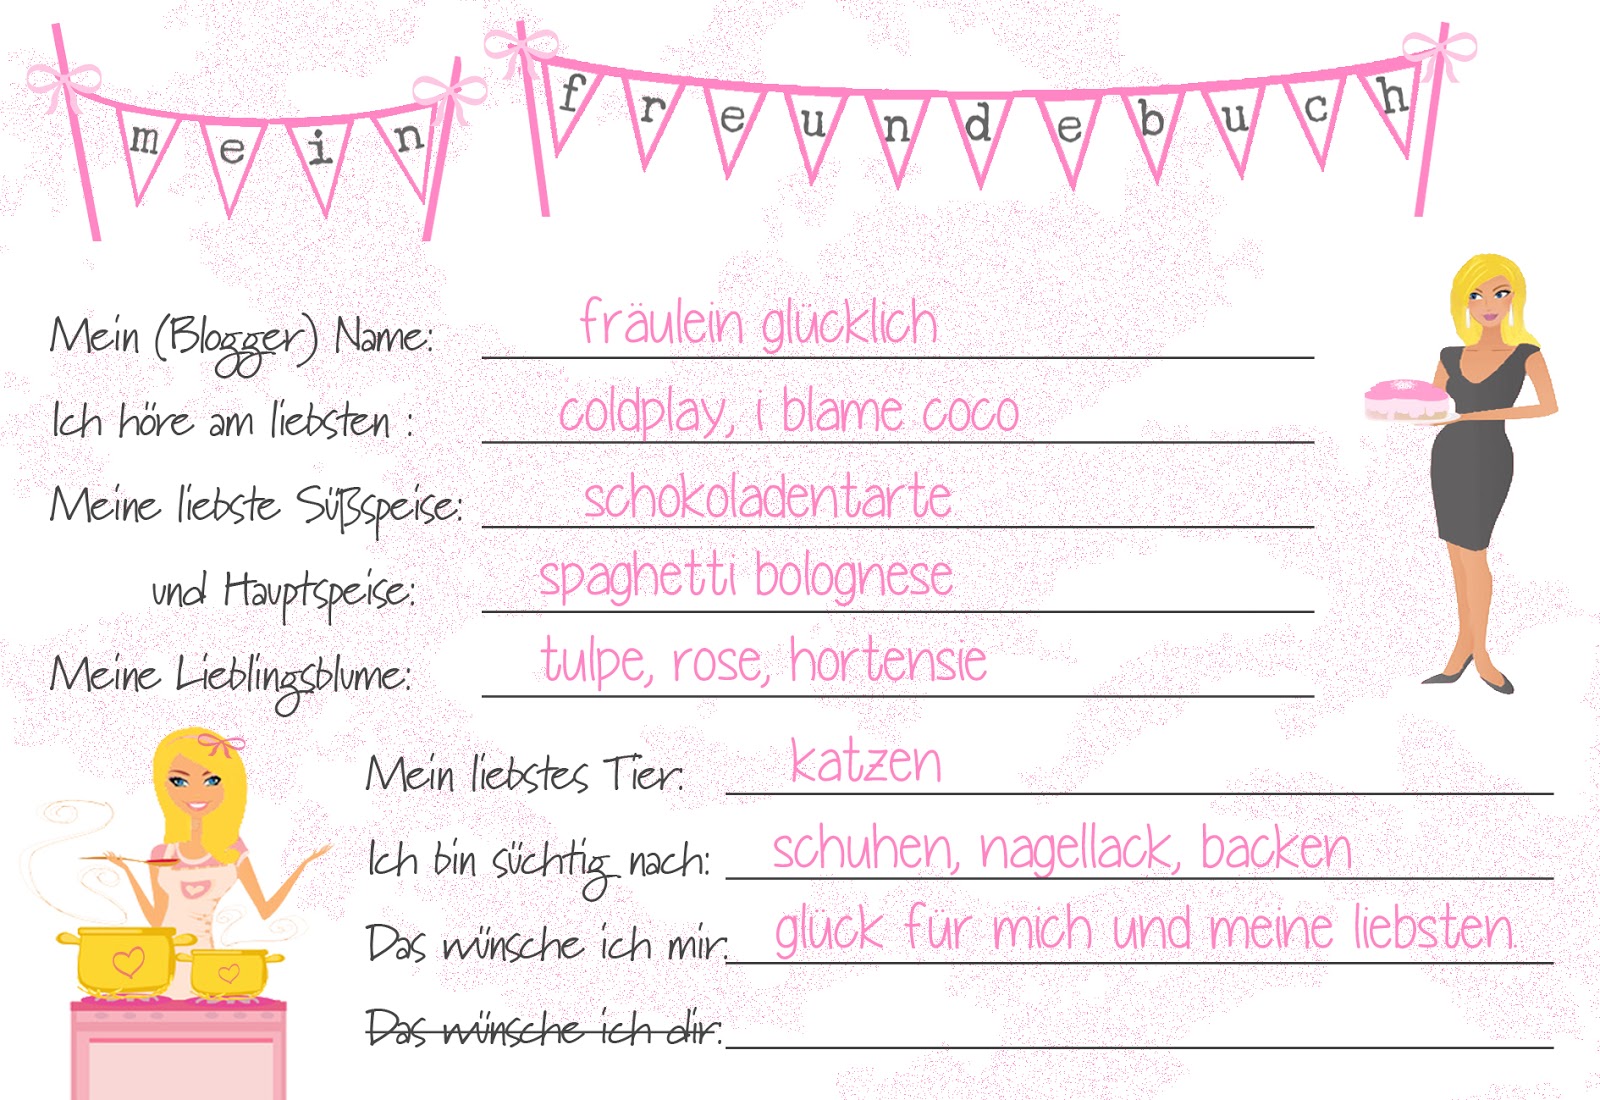 mein freundebuch
Mein (Blogger) Name: fräulein glücklich
Ich höre am liebsten : coldplay, i blame coco
Meine liebste Süßspeise: schokoladentarte
und Hauptspeise: spaghetti bolognese
Meine Lieblingsblume: tulpe, rose, hortensie
Mein liebstes Tier: katzen
Ich bin süchtig nach: schuhen, nagellack, backen
Das wünsche ich mir: glück für mich und meine liebsten.
Das wünsche ich dir: